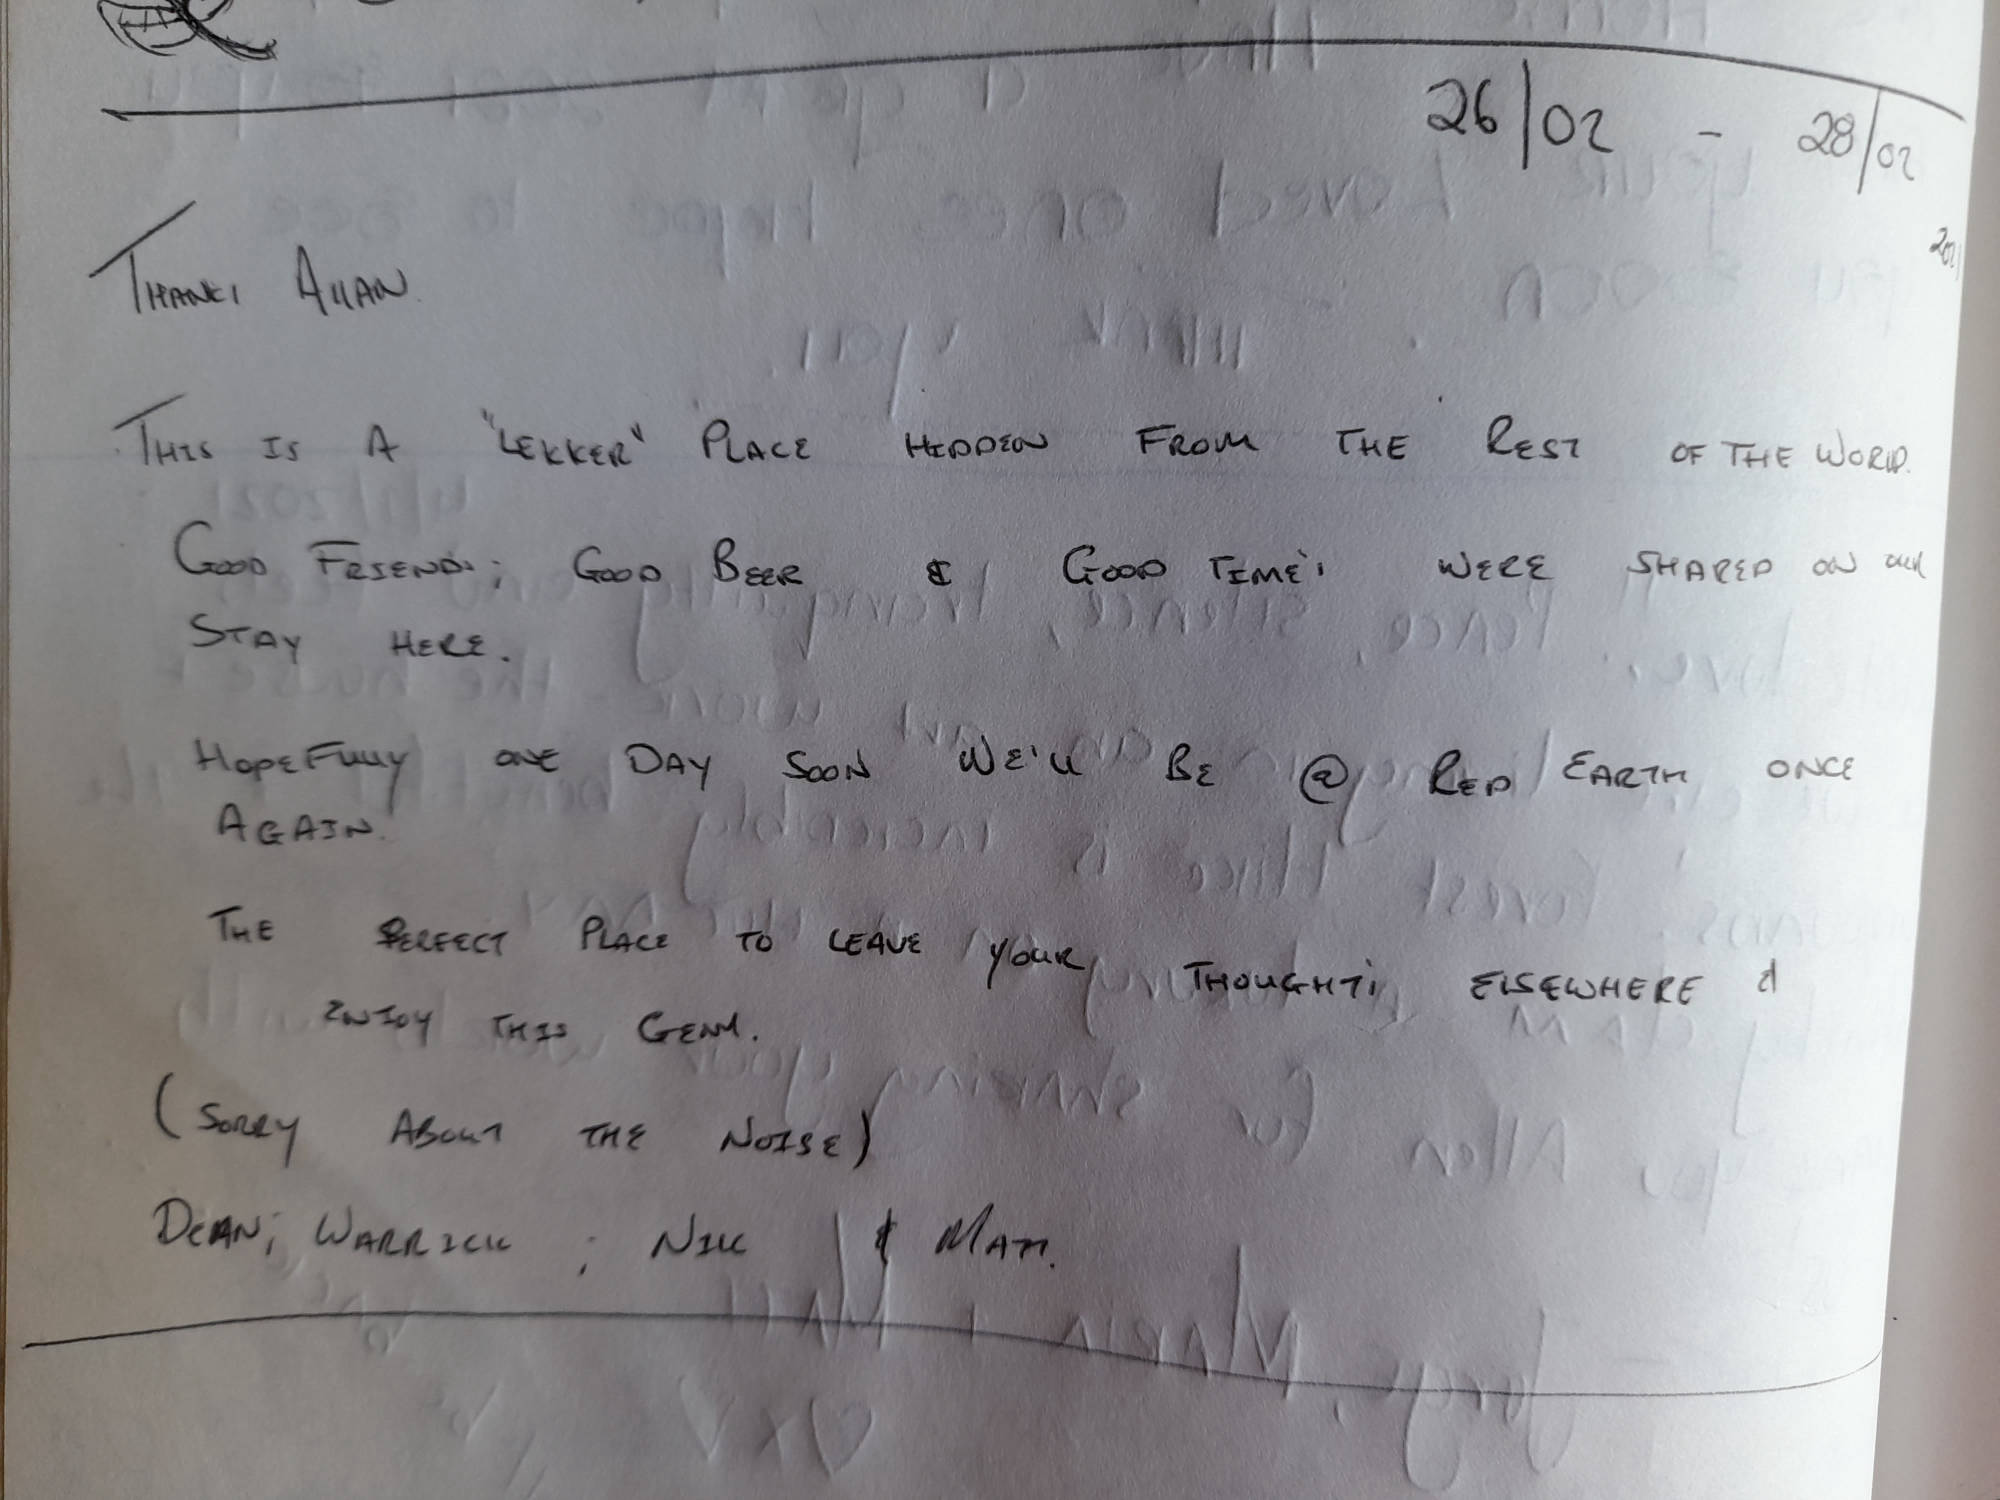 26/02 - 28/02
2021
THANKS ALLAN.
THIS IS A "LEKKER" PLACE HIDDEN FROM THE REST OF THE WORLD.
GOOD FRIENDS; GOOD BEER & GOOD TIMES WERE SHARED ON OUR
STAY HERE.
HOPEFULLY ONE DAY SOON WE'LL BE @ RED EARTH ONCE
AGAIN.
THE PERFECT PLACE TO LEAVE YOUR THOUGHTS ELSEWHERE &
ENJOY THIS GEM.
(SORRY ABOUT THE NOISE)
DEAN; WARRICK; NIK & MATT.